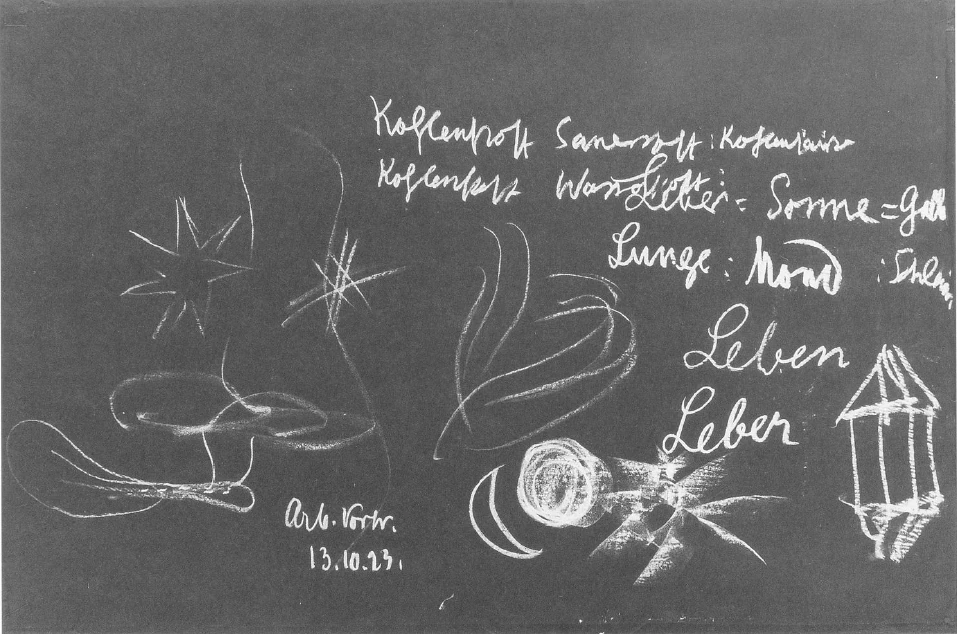 Kohlenstoff Sauerstoff : Kohlensäure
Kohlenstoff Wasserstoff :
Leber = Sonne = Galle
Lunge : Mond : Schleim
Leben
Leber
Arb. Vortr.
13.10.23.